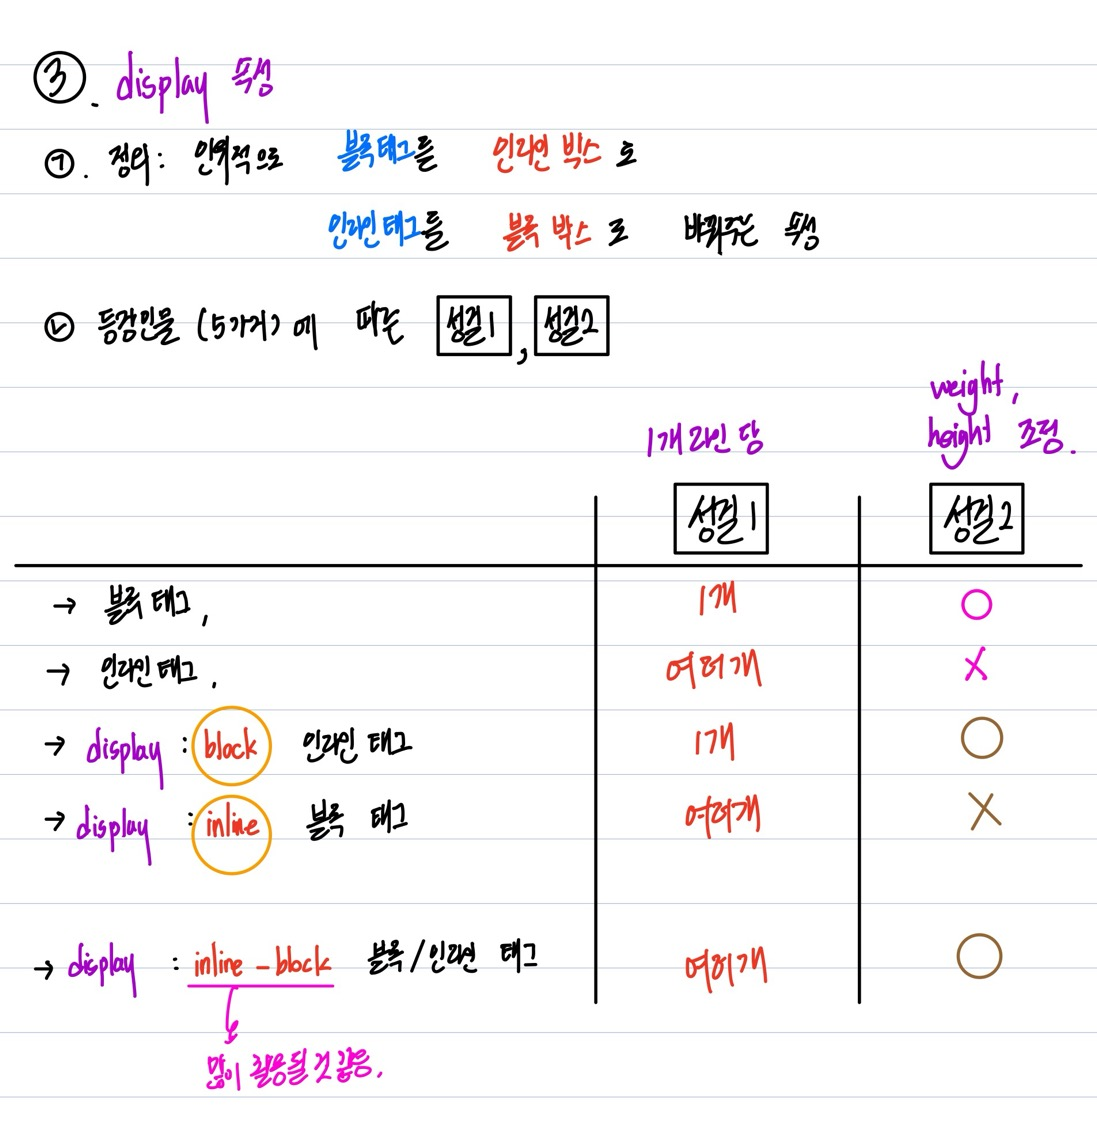 ③. display 속성
㉠. 정의: 인위적으로 블록태그를 인라인 박스로
인라인태그를 블록 박스로 바꿔주는 속성
㉡ 등장인물 (5가지)에 따른 성질1, 성질2
weight,
1개 라인 당 height 조정.
성질1 성질2
→ 블록 태그, 1개 ○
→ 인라인 태그, 여러개 X
→ display : block 인라인 태그 1개 ○
→ display : inline 블록 태그 여러개 X
→ display : inline - block 블록/인라인 태그 여러개 ○
많이 활용될 것 같음.